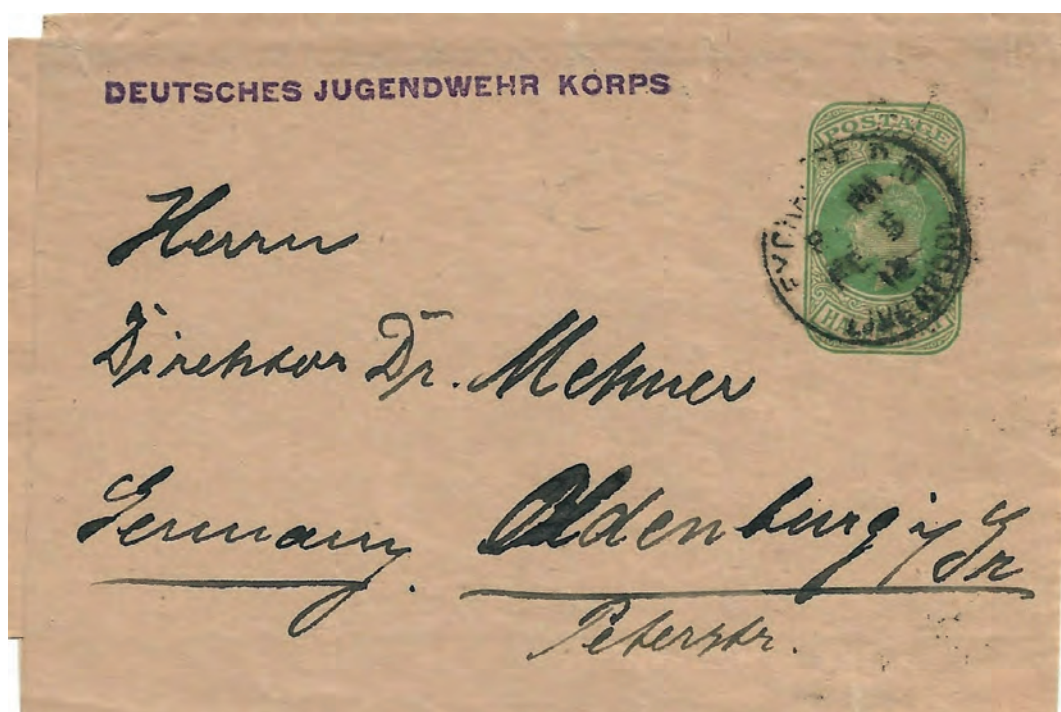 DEUTSCHES JUGENDWEHR KORPS
POSTAGE
LIVERPOOL
Herrn
Direktor Dr.
Germany. Oldenburg i/Gr
Peterstr.